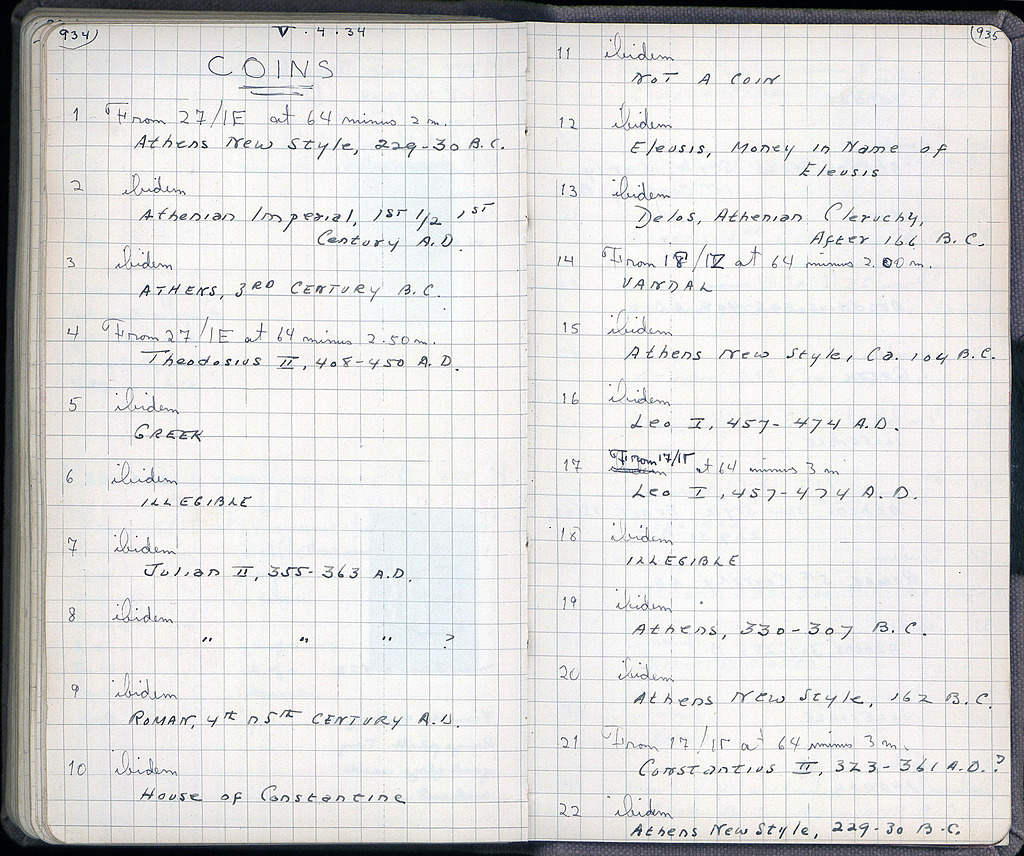 934
V · 4 · 34
COINS
1 From 27/ΙΕ at 64 minus 2 m.
Athens New Style, 229-30 B.C.
2 ibidem
Athenian Imperial, 1ST 1/2 1ST
Century A.D.
3 ibidem
ATHENS, 3RD CENTURY B.C.
4 From 27/ΙΕ at 64 minus 2.50 m.
Theodosius II, 408-450 A.D.
5 ibidem
GREEK
6 ibidem
ILLEGIBLE
7 ibidem
Julian II, 355-363 A.D.
8 ibidem
" " " ?
9 ibidem
ROMAN, 4TH 5TH CENTURY A.D.
10 ibidem
House of Constantine
935
11 ibidem
NOT A COIN
12 ibidem
Eleusis, Money in Name of
Eleusis
13 ibidem
Delos, Athenian Cleruchy,
After 166 B.C.
14 From 18/ at 64 minus 2.00 m.
VANDAL
15 ibidem
Athens New Style, Ca. 104 B.C.
16 ibidem
Leo I, 457-474 A.D.
17 From 17/ΙΓ at 64 minus 3 m
Leo I, 457-474 A.D.
18 ibidem
ILLEGIBLE
19 ibidem
Athens, 330-307 B.C.
20 ibidem
Athens New Style, 162 B.C.
21 From 17/ΙΓ at 64 minus 3 m.
Constantius II, 323-361 A.D.?
22 ibidem
Athens New Style, 229-30 B.C.